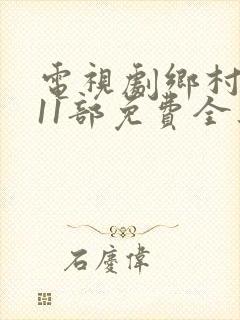 電視劇鄉村
11部免費全
石慶偉